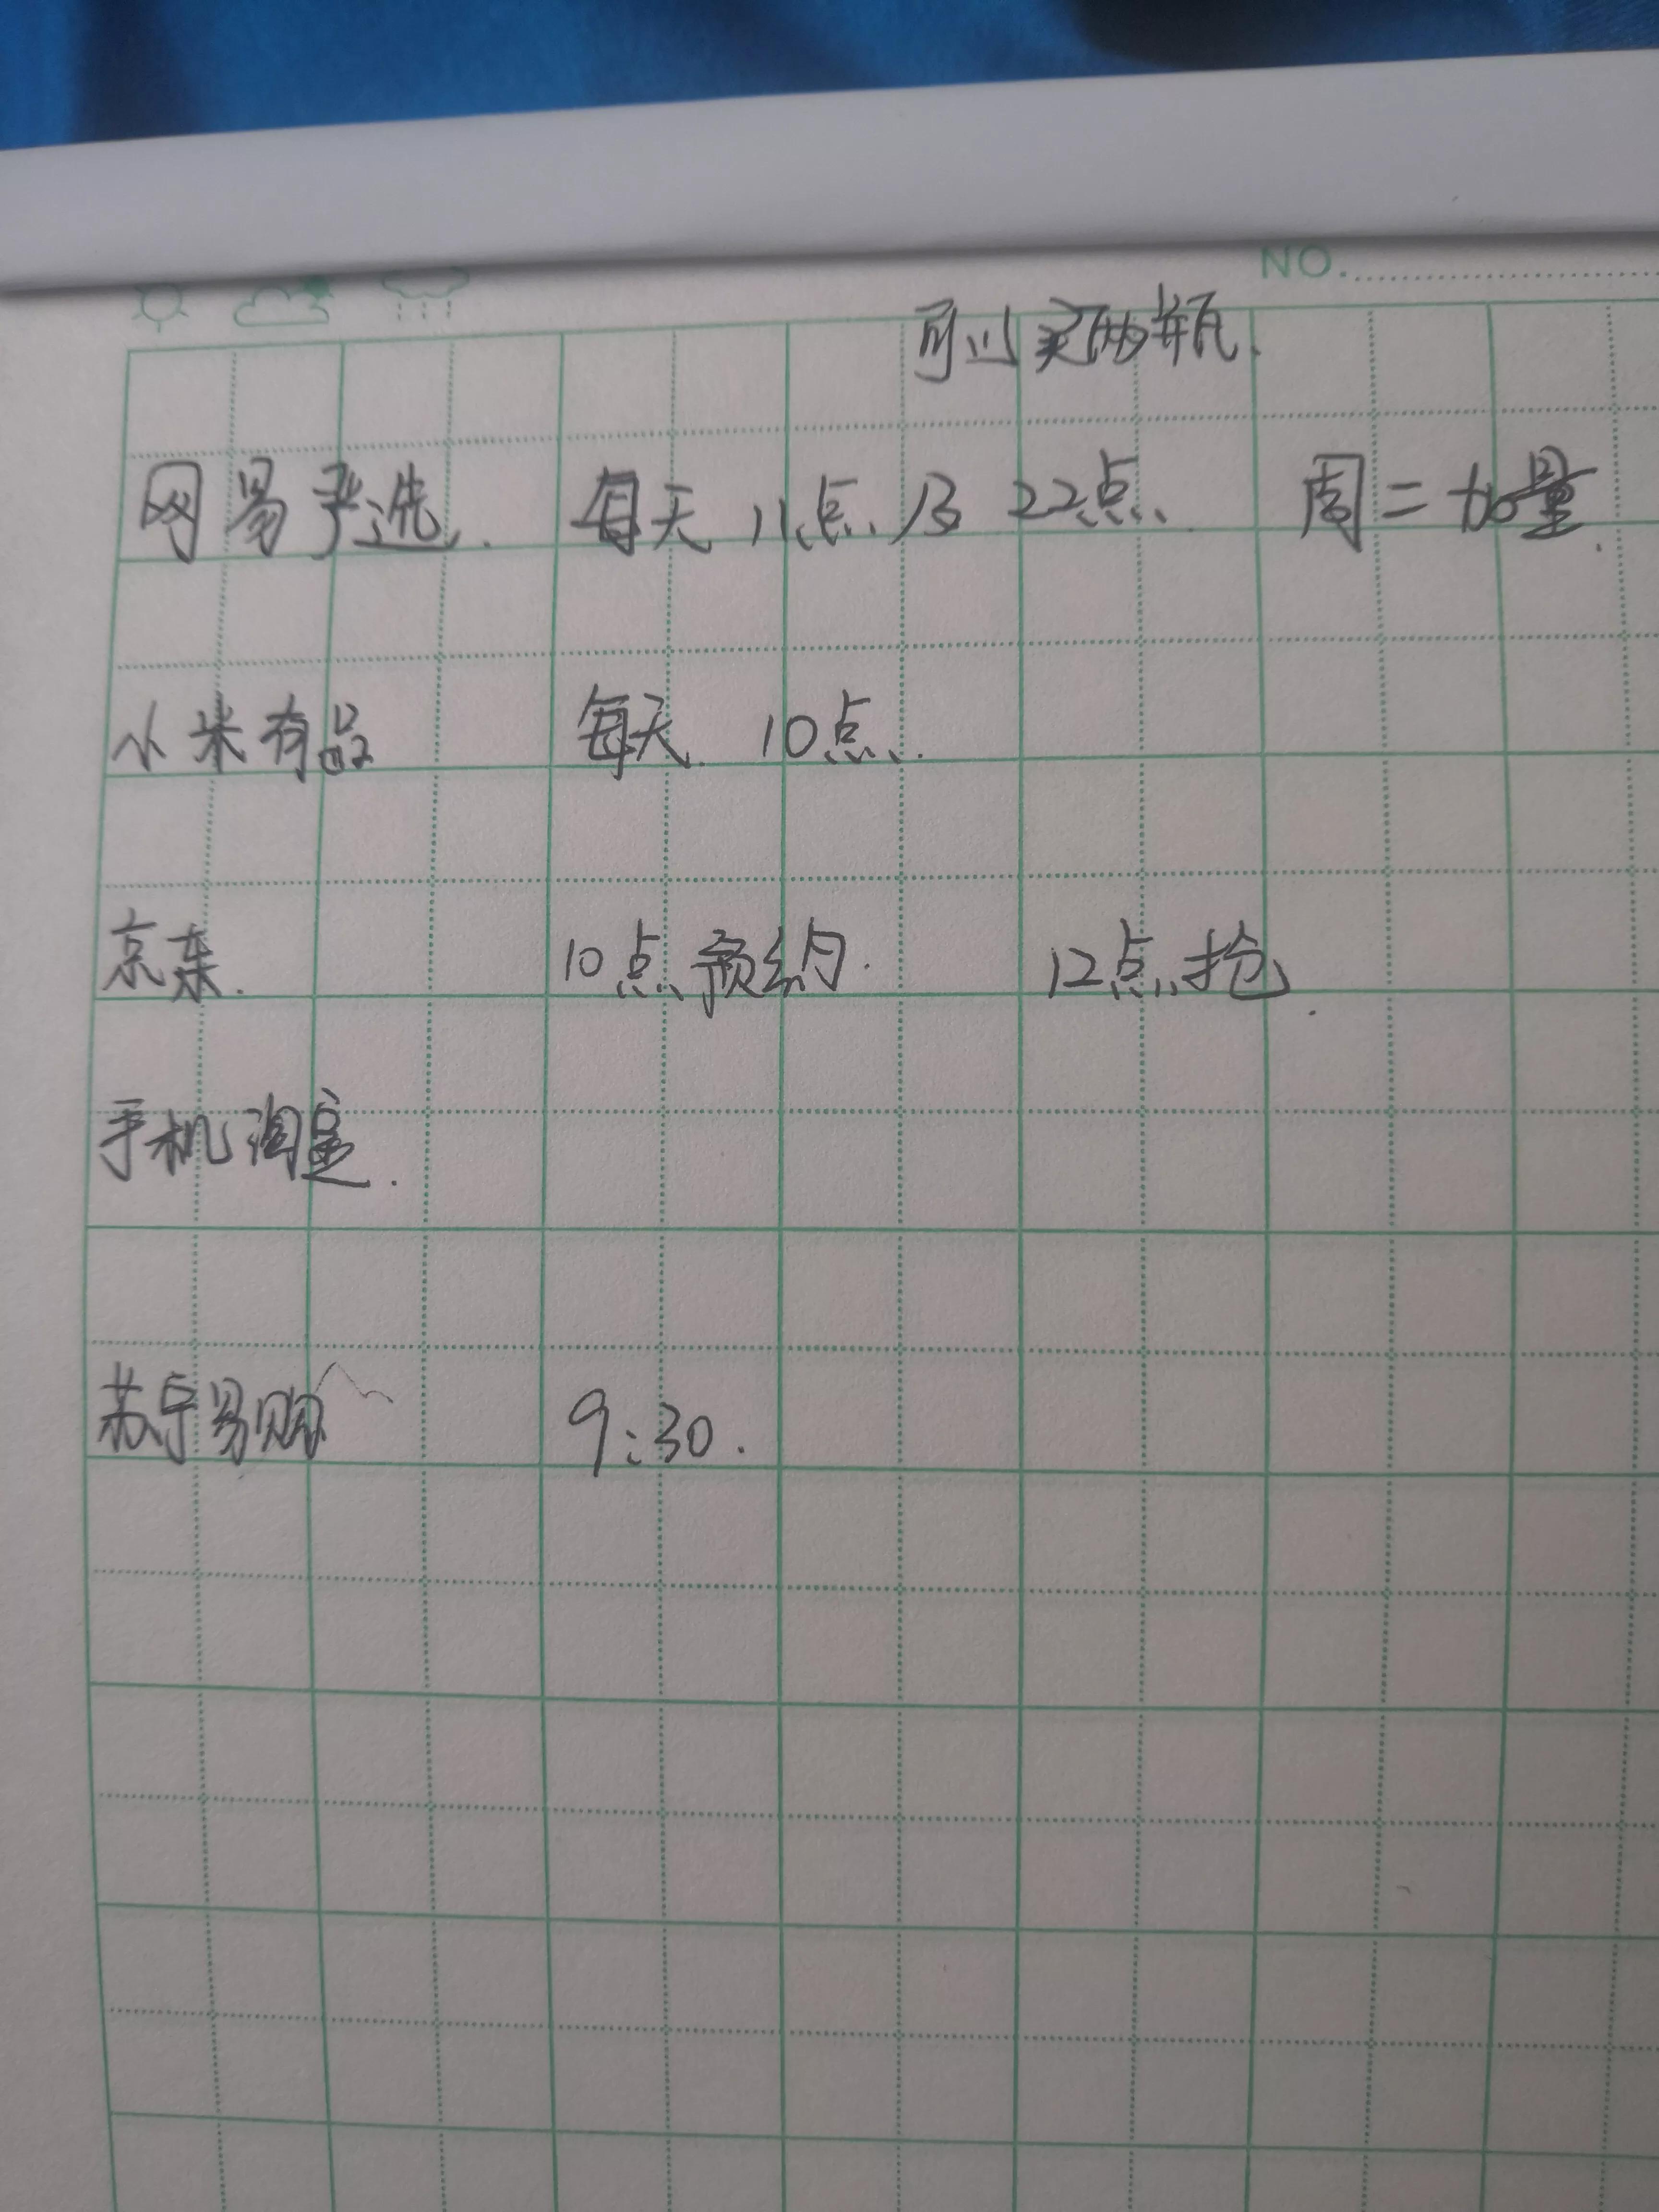 NO.
可以买两瓶.
网易严选. 每天 11点及 22点 周二加量.
小米有品 每天 10点.
京东. 10点预约. 12点抢.
手机淘宝.
苏宁易购 9:30.